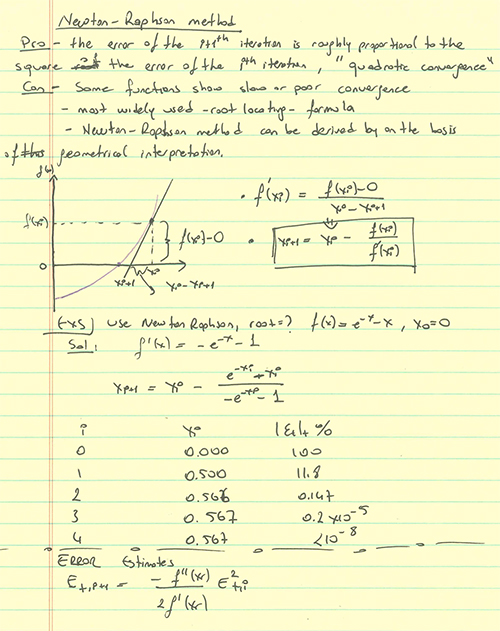 Newton-Raphson method
Pro - the error of the i+1th iteration is roughly proportional to the
square of the error of the ith iteration, "quadratic convergence"
Con - Some functions show slow or poor convergence
- most widely used -root locating- formula
- Newton-Raphson method can be derived by on the basis
of this geometrical interpretation.
f(x)
f'(xi)
0
xi+1
xi
f(xi)-0
xi-xi+1
• f'(xi) = f(xi)-0 / xi-xi+1
• xi+1 = xi - f(xi) / f'(xi)
EX5) Use Newton Raphson, root=? f(x)=e^-x-x, x0=0
Sol: f'(x) = -e^-x-1
xi+1 = xi - e^-xi+xi / -e^-xi-1
i xi |εt|%
0 0.000 100
1 0.500 11.8
2 0.566 0.147
3 0.567 0.2x10^-5
4 0.567 <10^-8
ERROR Estimates
Et,i+1 = -f''(xr) / 2f'(xr) E²t,i